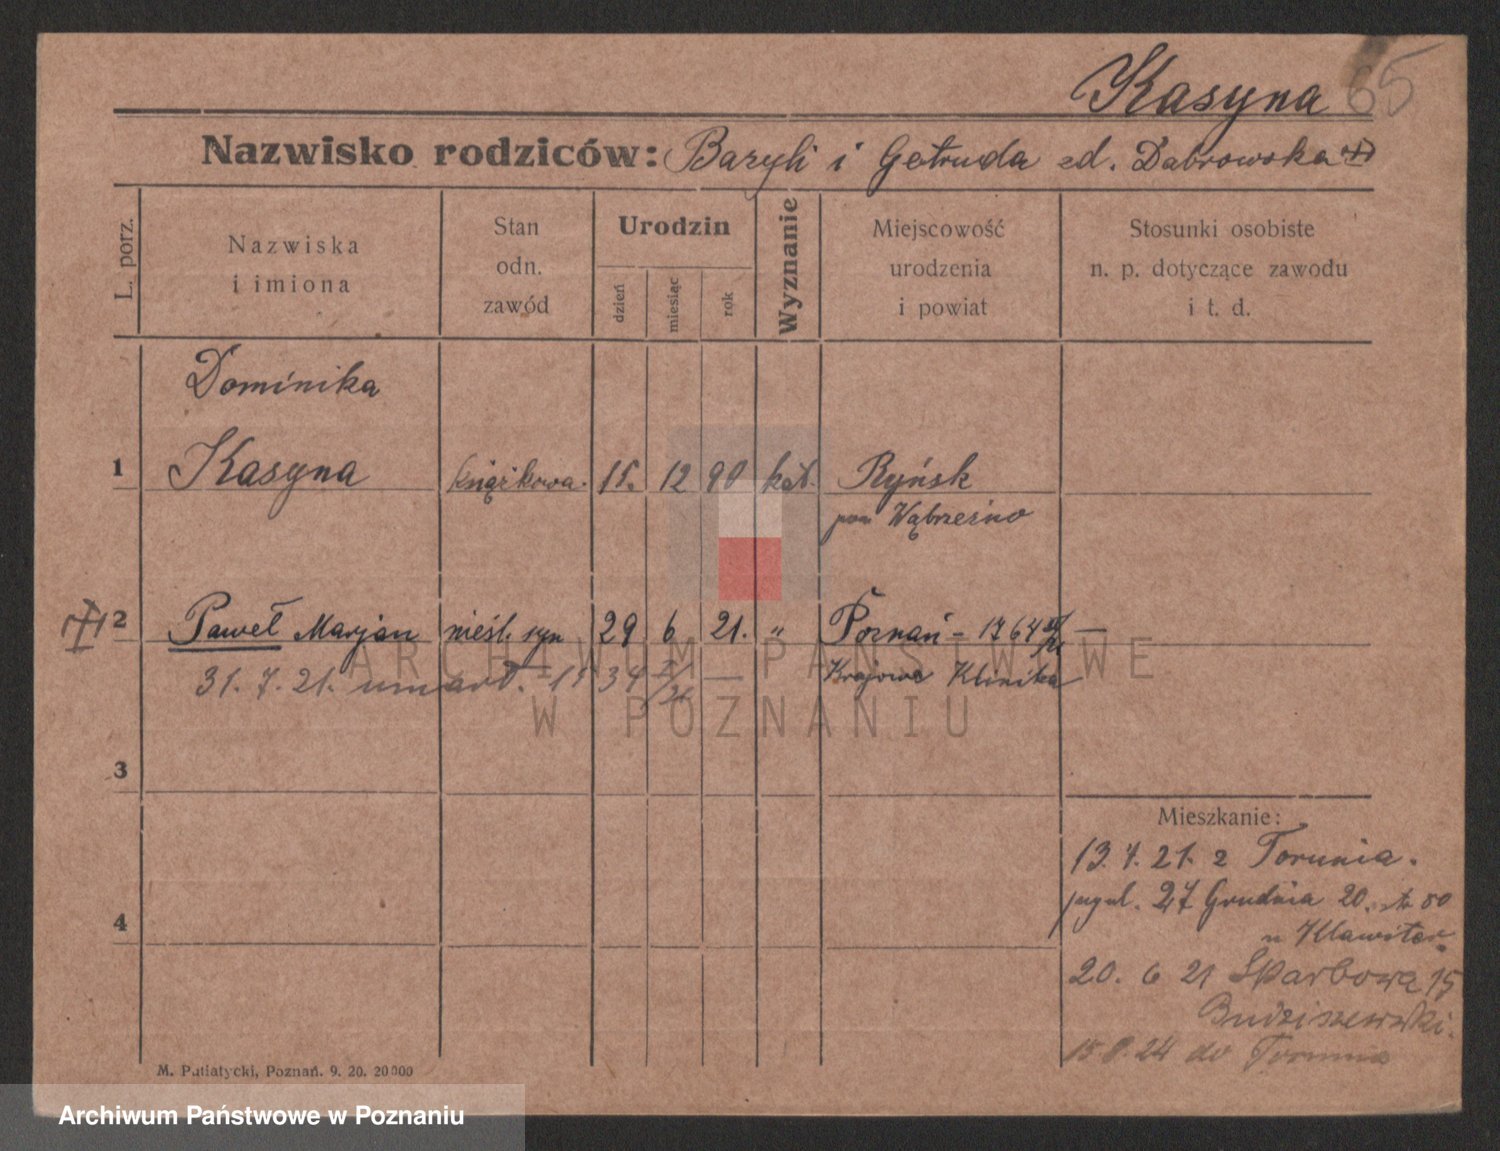 Kasyna 65
Nazwisko rodziców: Baryli i Getruda zd. Dabrowska
L. porz.
Nazwiska
i imiona
Stan
odn.
zawód
Urodzin
dzień
miesiąc
rok
Wyznanie
Miejscowość
urodzenia
i powiat
Stosunki osobiste
n. p. dotyczące zawodu
i t. d.
Dominika
1 Kasyna książkowa. 15. 12 90 kat. Ryńsk
pow Wąbrzeźno
2 Paweł Marjan nieśl. syn 29 6 21. " Poznań - 1764
31. 7. 21. umarł. 1534 Krajowa Klinika
3
Mieszkanie:
13. 7. 21. z Torunia.
27 Grudnia 20.
u Klawiter
4
20. 6 21 Skarbowa 15
Budziszewski.
15. 8. 24 do Torunia
M. Putiatycki, Poznań. 9. 20. 20000
ARCHIWUM PAŃSTWOWE
W POZNANIU
Archiwum Państwowe w Poznaniu